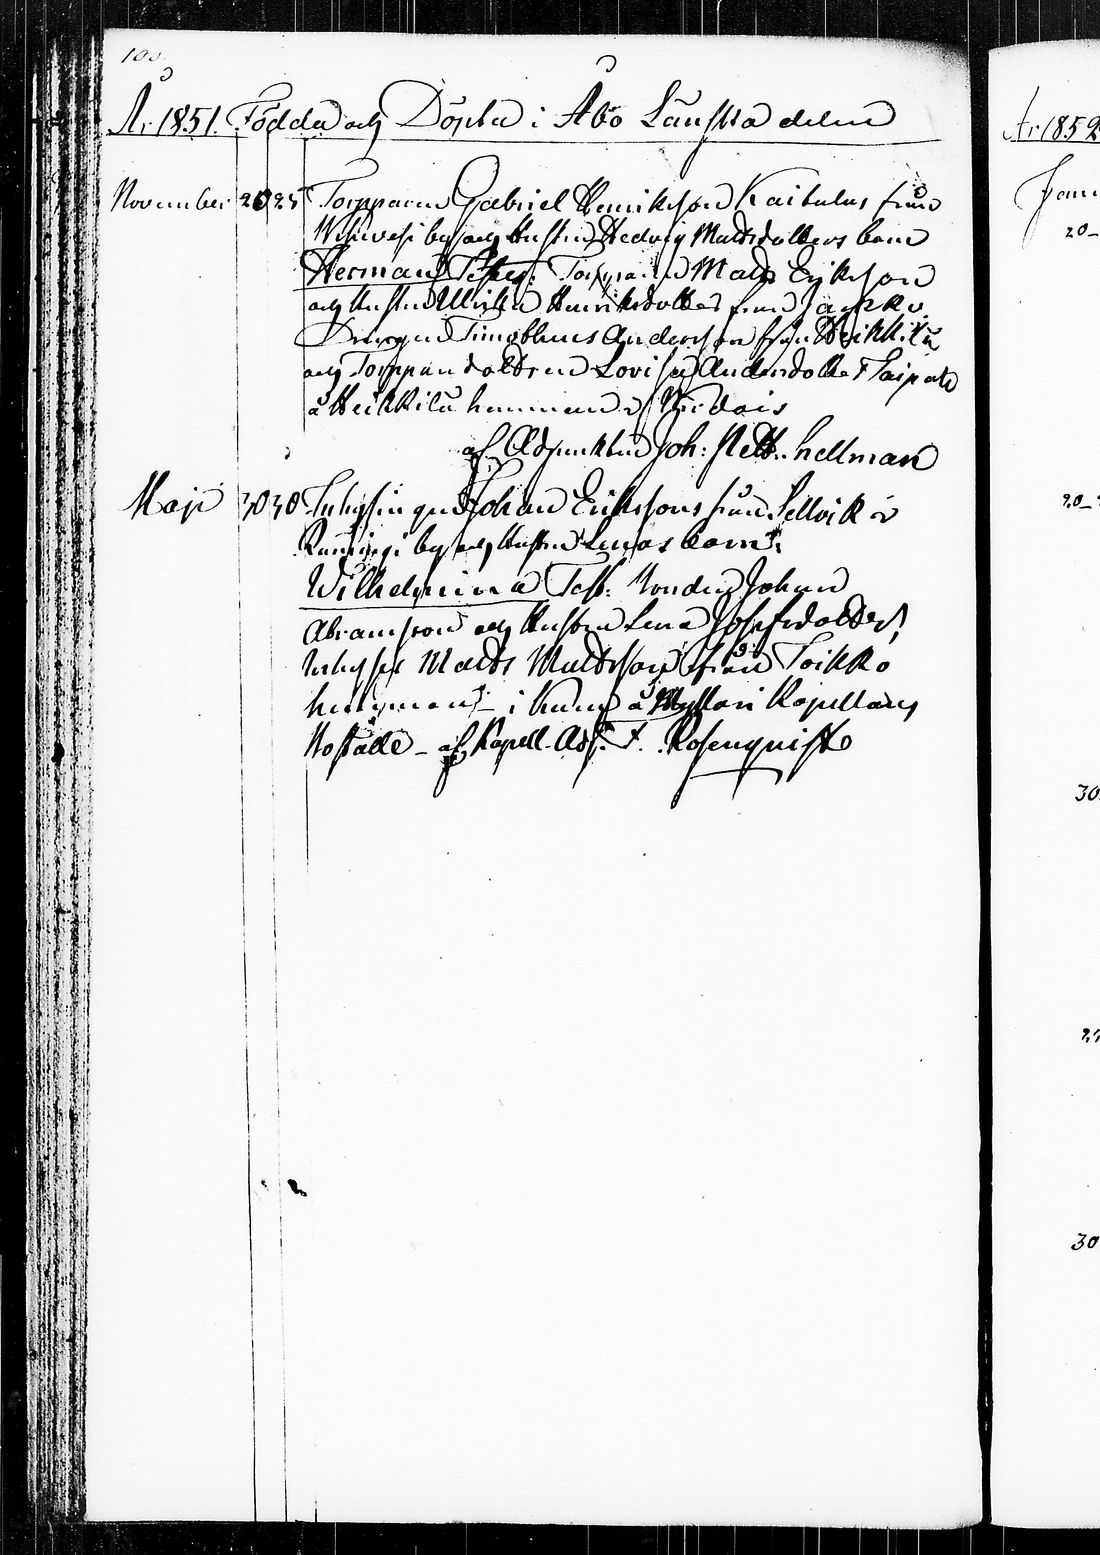 100.
År 1851. Födda och Döpta i Åbo Länska delen
November 20 25 Torpparen Gabriel Henriksson Kaitalas från
by och Hustrun Hedvig Mattsdotters barn
Herman Test: Torpparen Matts Eriksson
och Hustrun Ulrika Henriksdotter från
Drängen Timotheus Andersson från Heikkilä
och Torppardottren Lovisa Andersdotter
å Heikkilä hemman i
af Adjunkten Joh: Hellman
Maji 30 30 Inhysingen Johan Erikssons från Sellvik i
by och Hustrun Lenas barn:
Wilhelmina Test: Bonden Johan
Abramsson och Hustrun Lena Josefsdotter,
Inhyses Matts Mattsson från Toikko
hemman i Myllari Kapellans
Boställe - af Kapell. Adj. F. Rosenqvist
År 1852
20
20
30
30